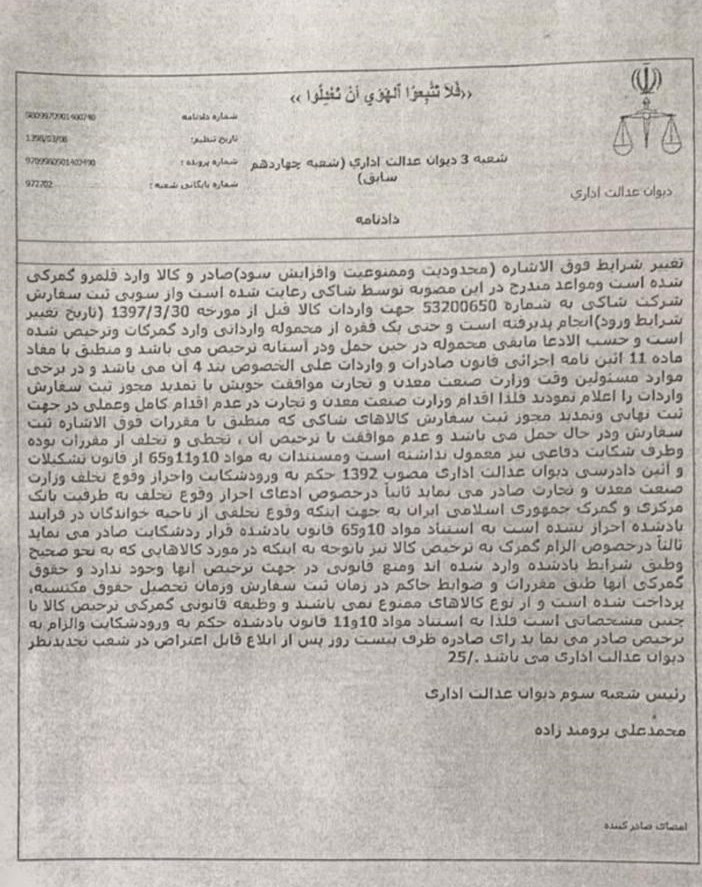 «فَلاَ تَتَّبِعوُا اَلْهَوَي اَنْ تَعْدِلُوا»
شماره دادنامه
9809970901400740
تاریخ تنظیم:
1398/03/08
شماره پرونده :
9709980901402490
شماره بایگانی شعبه :
972702
شعبه 3 دیوان عدالت اداری (شعبه چهاردهم
سابق)
دیوان عدالت اداری
دادنامه
تغییر شرایط فوق الاشاره (محدودیت وممنوعیت وافزایش سود)صادر و کالا وارد قلمرو گمرکی
شده است ومواعد مندرج در این مصوبه توسط شاکی رعایت شده است واز سویی ثبت سفارش
شرکت شاکی به شماره 53200650 جهت واردات کالا قبل از مورخه 1397/3/30 (تاریخ تغییر
شرایط ورود)انجام پذیرفته است و حتی یک فقره از محموله وارداتی وارد گمرکات وترخیص شده
است و حسب الادعا مابقی محموله در حین حمل ودر آستانه ترخیص می باشد و منطبق با مفاد
ماده 11 ائین نامه اجرائی قانون صادرات و واردات علی الخصوص بند 4 آن می باشد و در برخی
موارد مسئولین وقت وزارت صنعت معدن و تجارت موافقت خویش با تمدید مجوز ثبت سفارش
واردات را اعلام نمودند فلذا اقدام وزارت صنعت معدن و تجارت در عدم اقدام کامل وعملی در جهت
ثبت نهایی وتمدید مجوز ثبت سفارش کالاهای شاکی که منطبق با مقررات فوق الاشاره ثبت
سفارش ودر حال حمل می باشد و عدم موافقت با ترخیص ان ، تخطی و تخلف از مقررات بوده
وطرف شکایت دفاعی نیز معمول نداشته است ومستندات به مواد 10و11و65 از قانون تشکیلات
و آئین دادرسی دیوان عدالت اداری مصوب 1392 حکم به ورودشکایت واحراز وقوع تخلف وزارت
صنعت معدن و تجارت صادر می نماید ثانیاً درخصوص ادعای احراز وقوع تخلف به طرفیت بانک
مرکزی و گمرک جمهوری اسلامی ایران به جهت اینکه وقوع تخلفی از ناحیه خواندگان در فرایند
یادشده احراز نشده است به استناد مواد 10و65 قانون یادشده قرار ردشکایت صادر می نماید
ثالثاً درخصوص الزام گمرک به ترخیص کالا نیز باتوجه به اینکه در مورد کالاهایی که به نحو صحیح
وطبق شرایط یادشده وارد شده اند ومنع قانونی در جهت ترخیص آنها وجود ندارد و حقوق
گمرکی آنها طبق مقررات و ضوابط حاکم در زمان ثبت سفارش وزمان تحصیل حقوق مکتسبه،
پرداخت شده است و از نوع کالاهای ممنوع نمی باشند و وظیفه قانونی گمرکی ترخیص کالا با
چنین مشخصاتی است فلذا به استناد مواد 10و11 قانون یادشده حکم به ورودشکایت والزام به
ترخیص صادر می نما ید رای صادره ظرف بیست روز پس از ابلاغ قابل اعتراض در شعب تجدیدنظر
دیوان عدالت اداری می باشد ./25
رئیس شعبه سوم دیوان عدالت اداری
محمدعلی برومند زاده
امضای صادر کننده